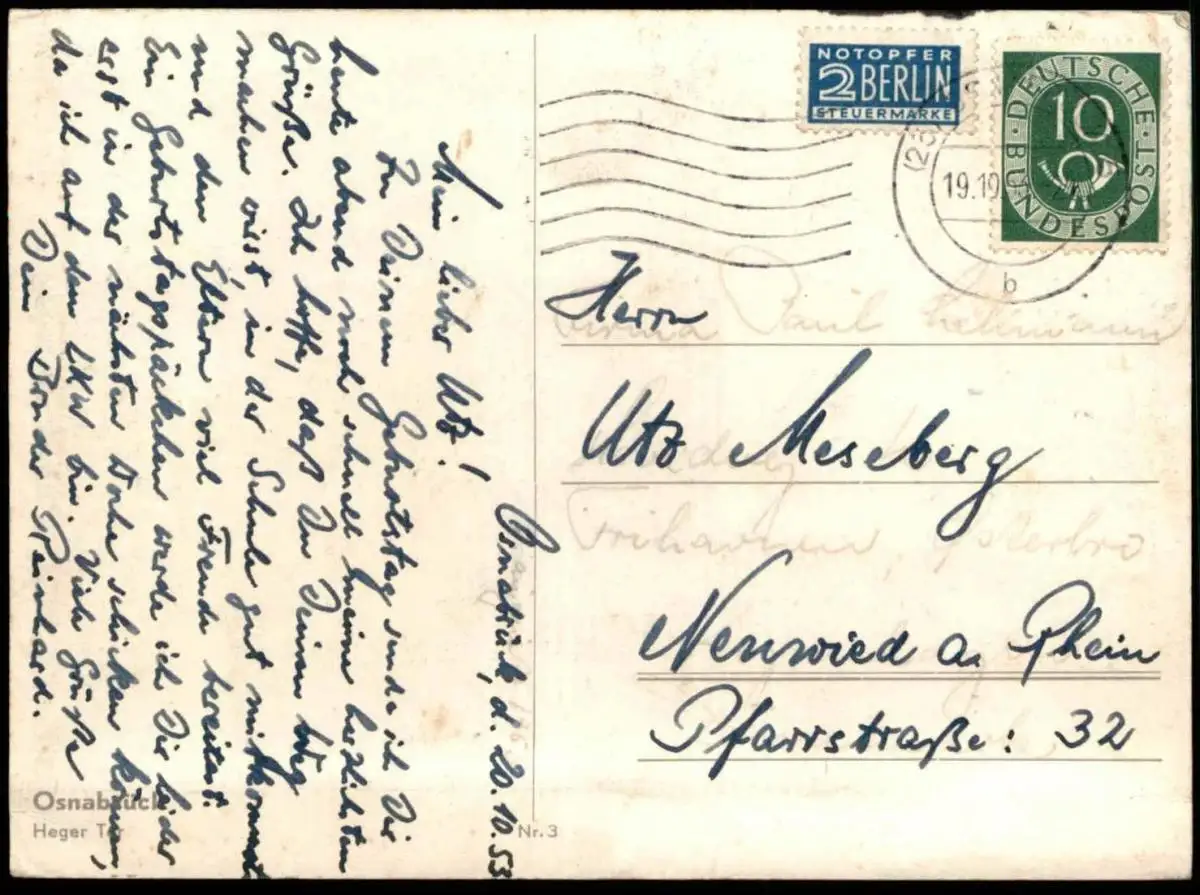 Osnabrück, d. 20.10.53
Mein lieber Utz!
Zu Deinem Geburtstag sende ich Dir
heute abend noch schnell meine herzlichsten
Grüße. Ich hoffe, daß Du Deinen Weg
machen wirst, in der Schule gut mitkommst
und den Eltern viel Freude bereitest.
Ein Geburtstagspäckchen werde ich Dir leider
erst in der nächsten Woche schicken können,
da ich auf dem LKW bin. Viele Grüße
Dein Bruder Reinhard.
NOTOPFER
2 BERLIN
STEUERMARKE
DEUTSCHE
10
BUNDESPOST
(23
19.10
b
Herrn
Utz Meseberg
Neuwied a. Rhein
Pfarrstraße: 32
Paul Lehmann
Osnabrück
Heger Tor
Nr. 3